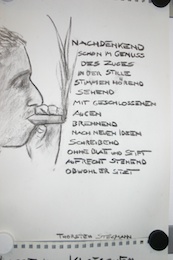 NACHDENKEND
SCHON IM GENUSS
DES ZUGES
IN DER STILLE
STIMMEN HÖREND
SEHEND
MIT GESCHLOSSENEN
AUGEN
BRENNEND
NACH NEUEN IDEEN
SCHREIBEND
OHNE BLATT UND STIFT
AUFRECHT STEHEND
OBWOHL ER SITZT
THORSTEN STEGMANN